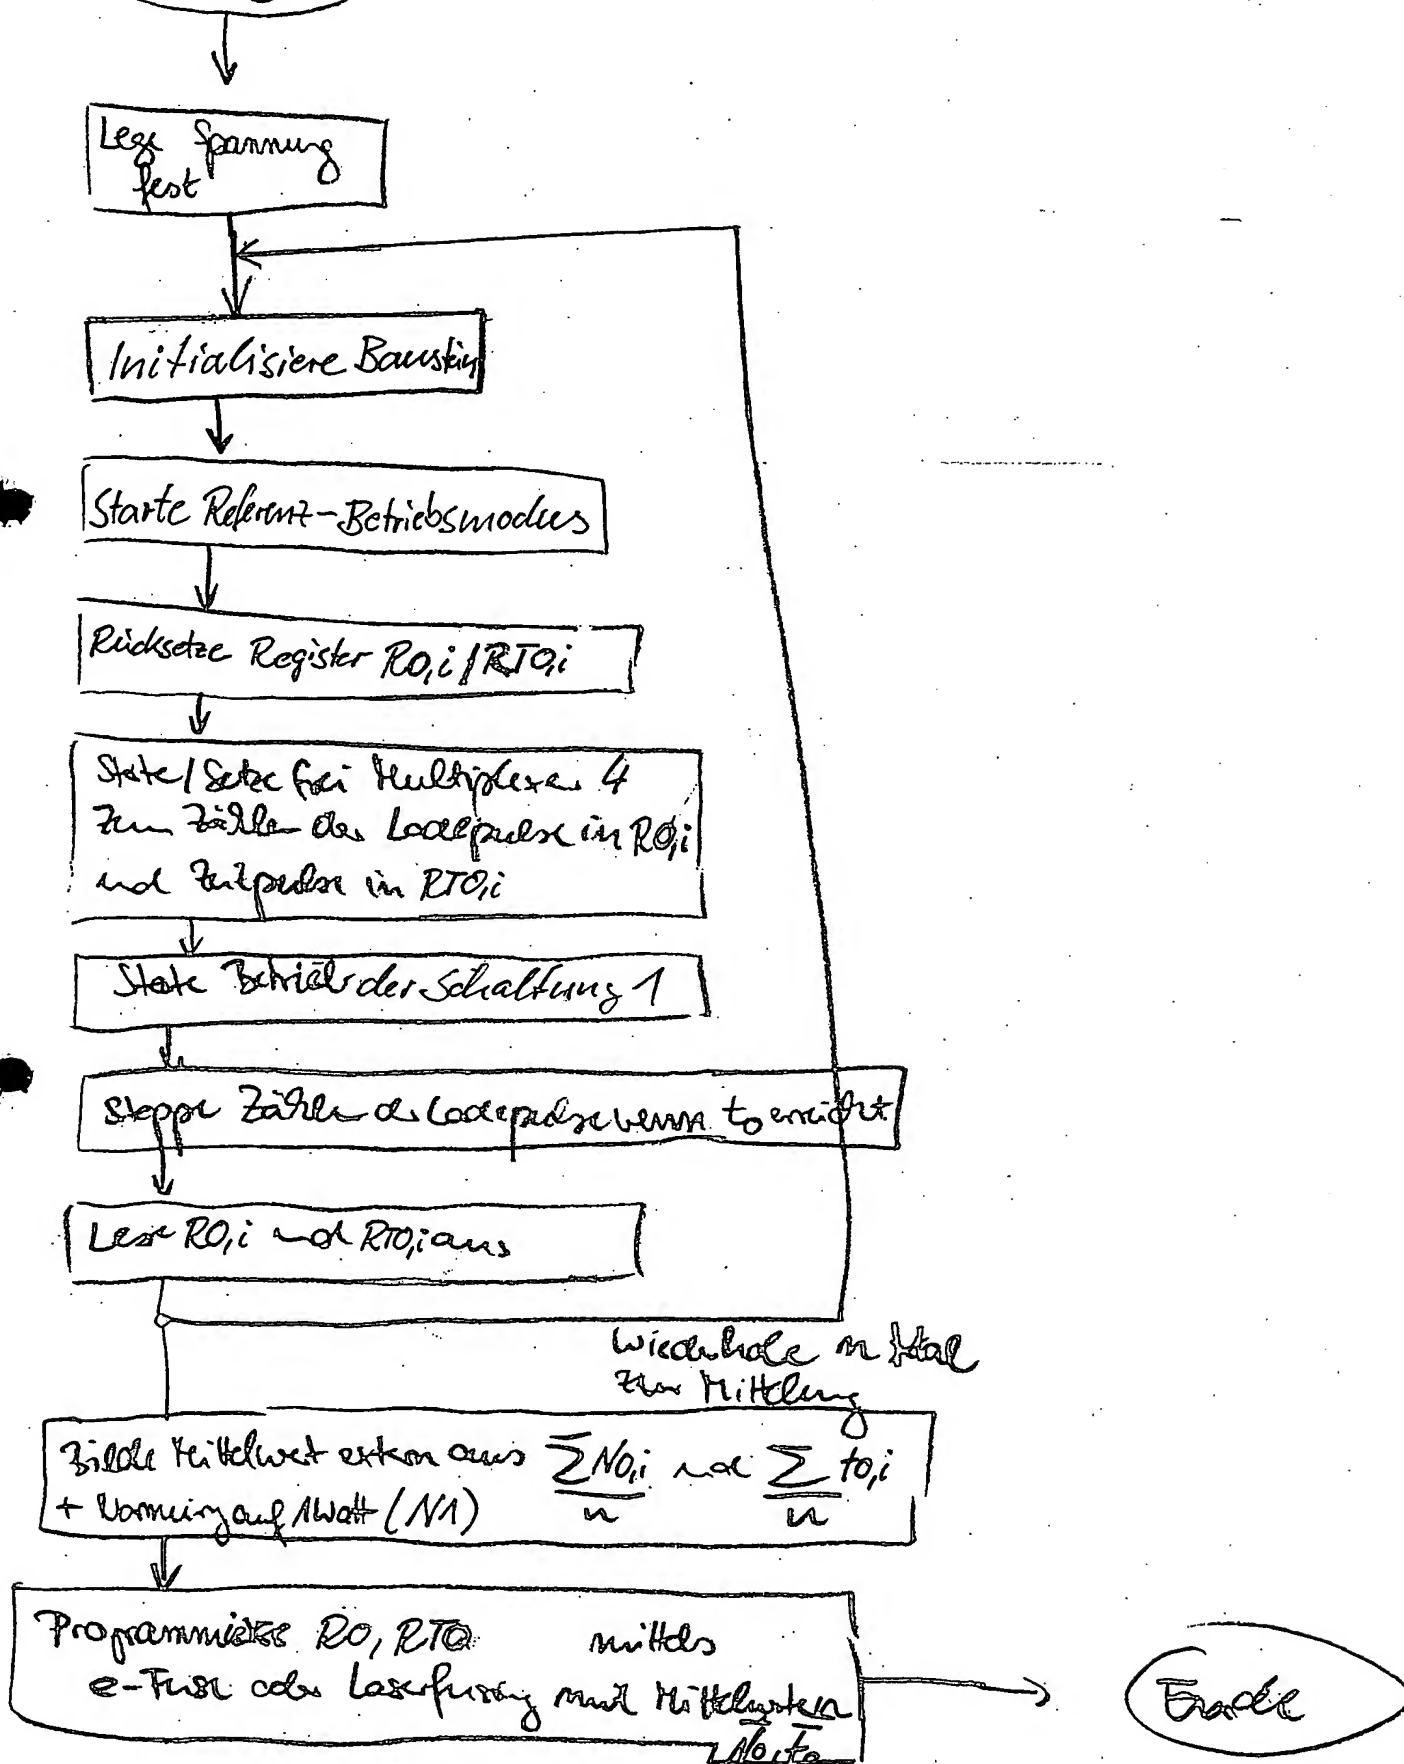 Lege Spannung
fest
Initialisiere Baustein
Starte Referenz-Betriebsmodus
Rücksetze Register R0,i / RT0,i
Starte / Setze frei Multiplexer 4
zum Zählen der Ladepulse in R0,i
und Zeitpulse in RT0,i
Starte Betrieb der Schaltung 1
Stoppe Zählen der Ladepulse wenn t0 erreicht
Lese R0,i und RT0,i aus
Wiederhole n Mal
zur Mittlung
Bilde Mittelwert extern aus ΣN0,i/n und Σt0,i/n
+ Normierung auf 1Watt (N1)
Programmiere R0, RT0 mittels
e-Fuse oder Laserfusing mit Mittelwerten
N̄0, t̄0
Ende